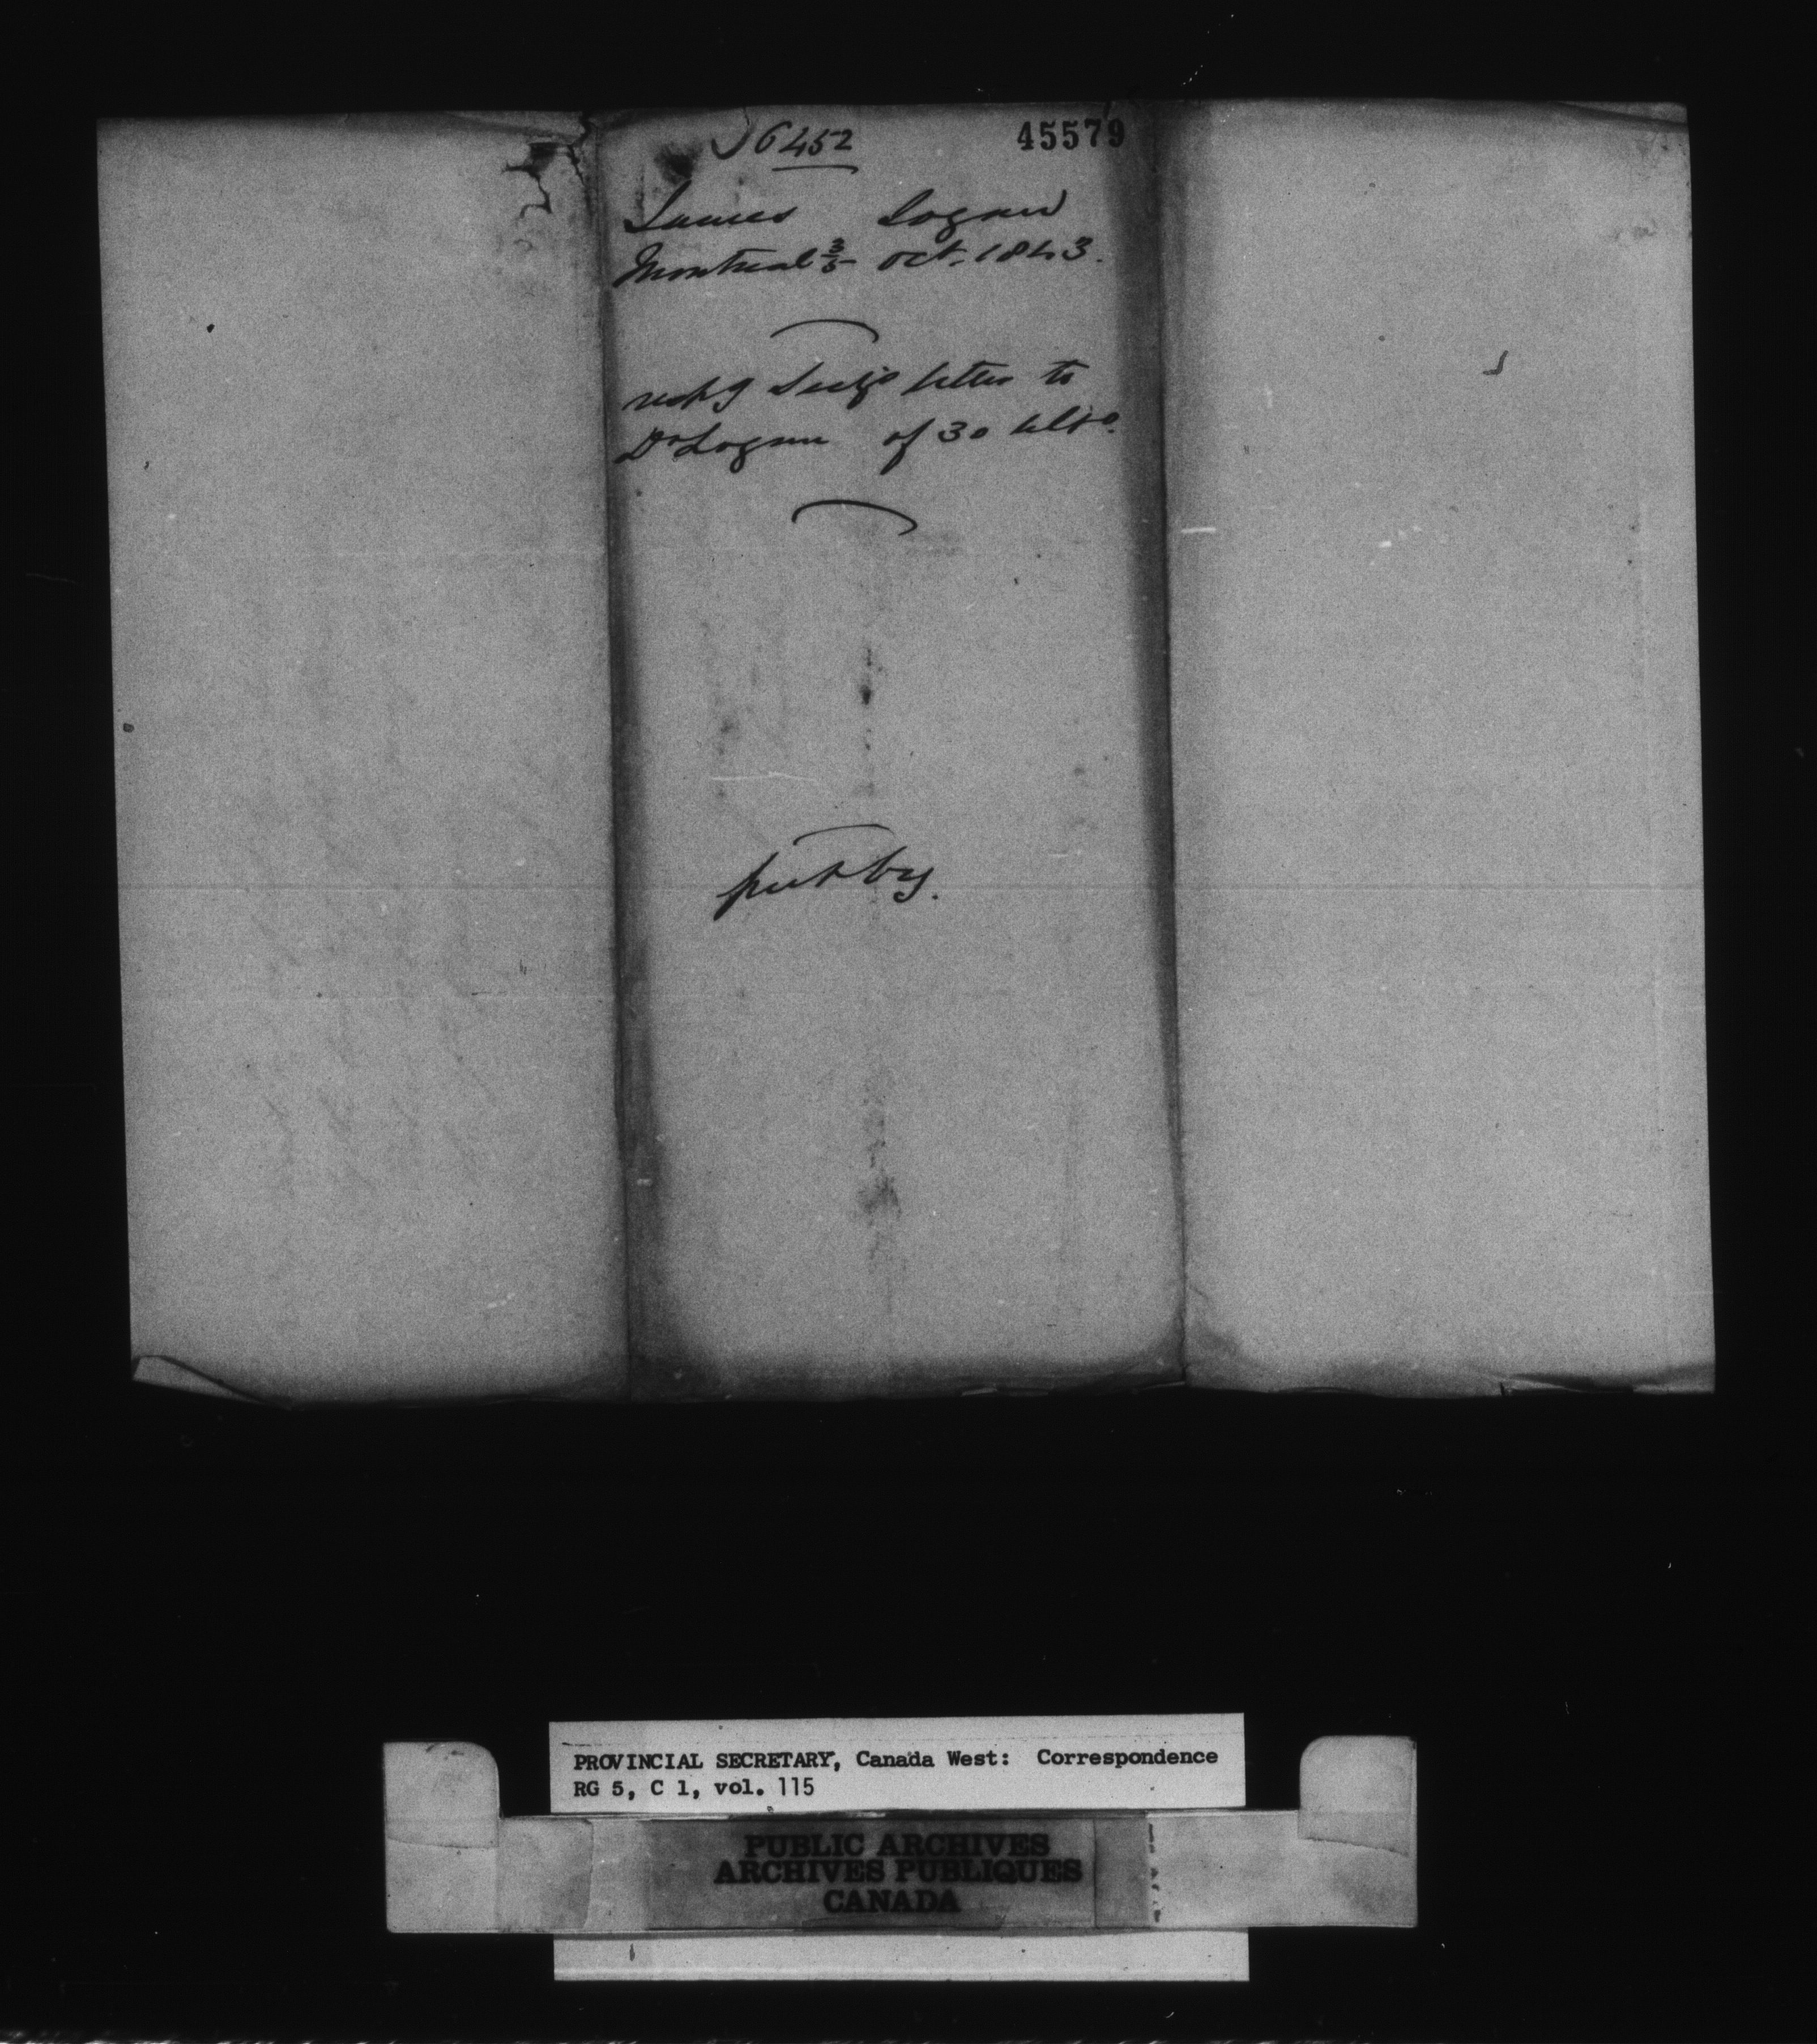 6452
45579
James Logan
Montreal 3/5 Oct. 1843.
letter to
Dr Logan of 30 Ulto.
put by.
PROVINCIAL SECRETARY, Canada West: Correspondence
RG 5, C 1, vol. 115
PUBLIC ARCHIVES
ARCHIVES PUBLIQUES
CANADA